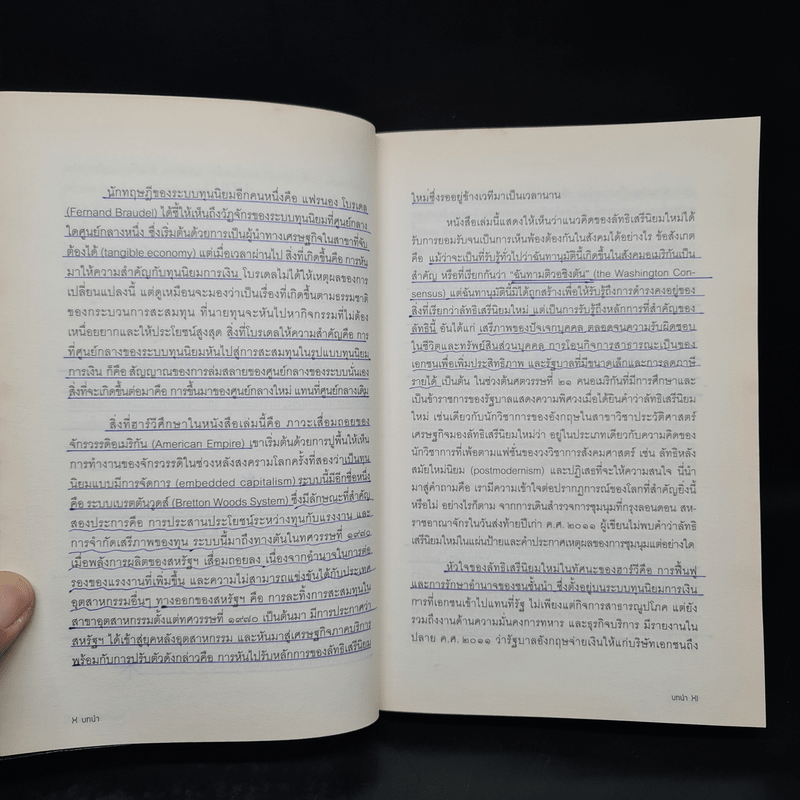 นักทฤษฎีของระบบทุนนิยมอีกคนหนึ่งคือ แฟรนอง โบรเดล
(Fernand Braudel) ได้ชี้ให้เห็นถึงวัฏจักรของระบบทุนนิยมที่ศูนย์กลาง
ใดศูนย์กลางหนึ่ง ซึ่งเริ่มต้นด้วยการเป็นผู้นำทางเศรษฐกิจในสาขาที่จับ
ต้องได้ (tangible economy) แต่เมื่อเวลาผ่านไป สิ่งที่เกิดขึ้นคือ การหัน
มาให้ความสำคัญกับทุนนิยมการเงิน โบรเดลไม่ได้ให้เหตุผลของการ
เปลี่ยนแปลงนี้ แต่ดูเหมือนจะมองว่าเป็นเรื่องที่เกิดขึ้นตามธรรมชาติ
ของกระบวนการสะสมทุน ที่นายทุนจะหันไปหากิจกรรมที่ไม่ต้อง
เหนื่อยยากและให้ประโยชน์สูงสุด สิ่งที่โบรเดลให้ความสำคัญคือ การ
ที่ศูนย์กลางของระบบทุนนิยมหันไปสู่การสะสมทุนในรูปแบบทุนนิยม
การเงิน ก็คือ สัญญาณของการล่มสลายของศูนย์กลางของระบบนั่นเอง
สิ่งที่จะเกิดขึ้นต่อมาคือ การขึ้นมาของศูนย์กลางใหม่ แทนที่ศูนย์กลางเดิม
สิ่งที่ฮาร์วีศึกษาในหนังสือเล่มนี้คือ ภาวะเสื่อมถอยของ
จักรวรรดิอเมริกัน (American Empire) เขาเริ่มต้นด้วยการปูพื้นให้เห็น
การทำงานของจักรวรรดิในช่วงหลังสงครามโลกครั้งที่สองว่าเป็นทุน
นิยมแบบมีการจัดการ (embedded capitalism) ระบบนี้มีอีกชื่อหนึ่ง
คือ ระบบเบรตตันวูดส์ (Bretton Woods System) ซึ่งมีลักษณะที่สำคัญ
สองประการคือ การประสานประโยชน์ระหว่างทุนกับแรงงาน และ
การจำกัดเสรีภาพของทุน ระบบนี้มาถึงทางตันในทศวรรษที่ ๑๙๗๐
เมื่อพลังการผลิตของสหรัฐฯ เสื่อมถอยลง เนื่องจากอำนาจในการต่อ
รองของแรงงานที่เพิ่มขึ้น และความไม่สามารถแข่งขันได้กับประเทศ
อุตสาหกรรมอื่นๆ ทางออกของสหรัฐฯ คือ การละทิ้งการสะสมทุนใน
สาขาอุตสาหกรรมตั้งแต่ทศวรรษที่ ๑๙๘๐ เป็นต้นมา มีการประกาศว่า
สหรัฐฯ ได้เข้าสู่ยุคหลังอุตสาหกรรม และหันมาสู่เศรษฐกิจภาคบริการ
พร้อมกับการปรับตัวดังกล่าวคือ การหันไปรับหลักการของลัทธิเสรีนิยม
X บทนำ
ใหม่ซึ่งรออยู่ข้างเวทีมาเป็นเวลานาน
หนังสือเล่มนี้แสดงให้เห็นว่าแนวคิดของลัทธิเสรีนิยมใหม่ได้
รับการยอมรับจนเป็นการเห็นพ้องต้องกันในสังคมได้อย่างไร ข้อสังเกต
คือ แม้ว่าจะเป็นที่รับรู้ทั่วไปว่าฉันทานุมัตินี้เกิดขึ้นในสังคมอเมริกันเป็น
สำคัญ หรือที่เรียกกันว่า “ฉันทามติวอชิงตัน” (the Washington Con-
sensus) แต่ฉันทานุมัตินี้มิได้ถูกสร้างเพื่อให้รับรู้ถึงการดำรงคงอยู่ของ
สิ่งที่เรียกว่าลัทธิเสรีนิยมใหม่ แต่เป็นการรับรู้ถึงหลักการที่สำคัญของ
ลัทธินี้ อันได้แก่ เสรีภาพของปัจเจกบุคคล ตลอดจนความรับผิดชอบ
ในชีวิตและทรัพย์สินส่วนบุคคล การโอนกิจการสาธารณะเป็นของ
เอกชนเพื่อเพิ่มประสิทธิภาพ และรัฐบาลที่มีขนาดเล็กและการลดภาษี
รายได้ เป็นต้น ในช่วงต้นศตวรรษที่ ๒๑ คนอเมริกันที่มีการศึกษาและ
เป็นข้าราชการของรัฐบาลแสดงความพิศวงเมื่อได้ยินคำว่าลัทธิเสรีนิยม
ใหม่ เช่นเดียวกับนักวิชาการของอังกฤษในสาขาวิชาประวัติศาสตร์
เศรษฐกิจมองลัทธิเสรีนิยมใหม่ว่า อยู่ในประเภทเดียวกับความคิดของ
นักวิชาการที่เพ้อตามแฟชั่นของวงวิชาการสังคมศาสตร์ เช่น ลัทธิหลัง
สมัยใหม่นิยม (postmodernism) และปฏิเสธที่จะให้ความสนใจ นี่นำ
มาสู่คำถามคือ เรามีความเข้าใจต่อปรากฏการณ์ของโลกที่สำคัญยิ่งนี้
หรือไม่ อย่างไรก็ตาม จากการเดินสำรวจการชุมนุมที่กรุงลอนดอน สห-
ราชอาณาจักรในวันส่งท้ายปีเก่า ค.ศ. ๒๐๑๑ ผู้เขียนไม่พบคำว่าลัทธิ
เสรีนิยมใหม่ในแผ่นป้ายและคำประกาศเหตุผลของการชุมนุมแต่อย่างใด
หัวใจของลัทธิเสรีนิยมใหม่ในทัศนะของฮาร์วีคือ การฟื้นฟู
และการรักษาอำนาจของชนชั้นนำ ซึ่งตั้งอยู่บนระบบทุนนิยมการเงิน
การที่เอกชนเข้าไปแทนที่รัฐ ไม่เพียงแต่กิจการสาธารณูปโภค แต่ยัง
รวมถึงงานด้านความมั่นคงการทหาร และธุรกิจบริการ มีรายงานใน
ปลาย ค.ศ. ๒๐๑๑ ว่ารัฐบาลอังกฤษจ่ายเงินให้แก่บริษัทเอกชนถึง
บทนำ XI